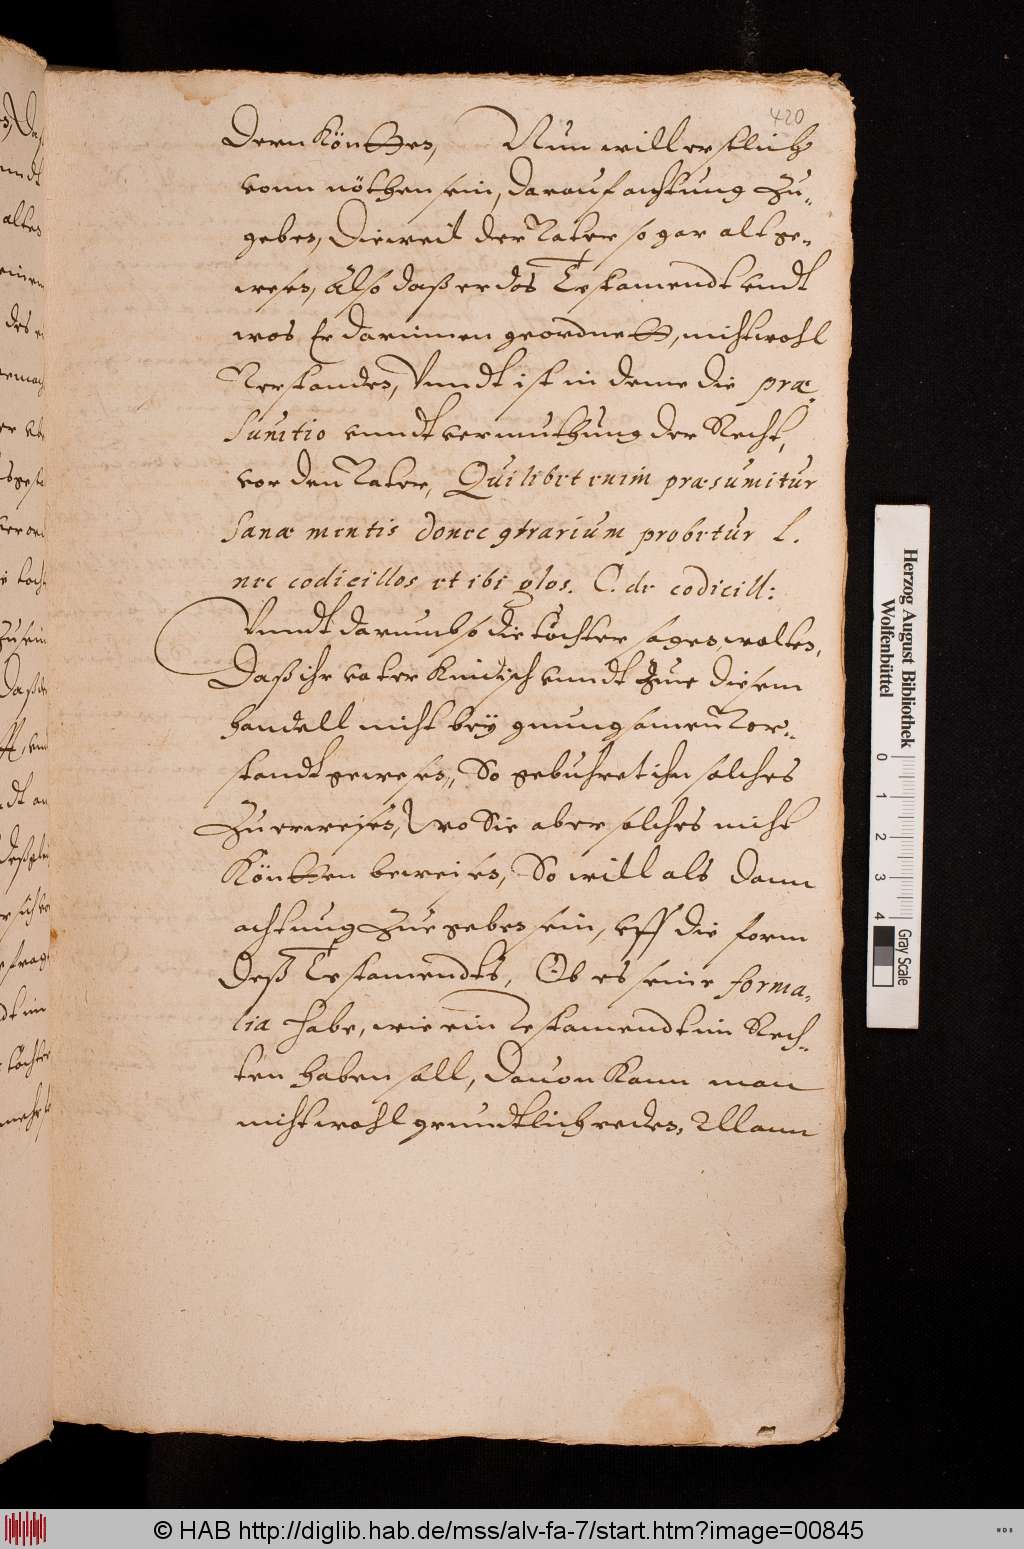 420
dern köntten, Nun will erstlich
vonn nöthen sein, darauf achtung zu„
geben, Dieweil der Vater so gar alt ge„
wesen, also daß er das Testamendt undt
was Er darinnen geordnett, nicht wohl
Verstanden, Vnndt ist in deme die præ„
sumtio vnndt vermuthung der Recht,
vor den Vater, Quilibet enim præsumitur
sanæ mentis donec contrarium probetur l.
nec codicillos et ibi glos. C. de codicill:
Vnndt darumb so die töchter sagen wolten,
Daß ihr vater Kindisch vnndt zue diesem
handell nicht bey gnungsamen Vor„
standt gewesen, So gebühret ihn solches
Zuerweisen, Wo Sie aber solches nicht
Köntten beweisen, So will als dann
achtung zue geben sein, vff die form
Deß Testamendts, Ob es seine forma„
lia habe, wie ein Testamendt im Rech„
ten haben soll, Dauon Kann man
nicht wohl grundtlich reden, Wann
Herzog August Bibliothek
Wolfenbüttel
0 1 2 3 4
Gray Scale
© HAB http://diglib.hab.de/mss/alv-fa-7/start.htm?image=00845